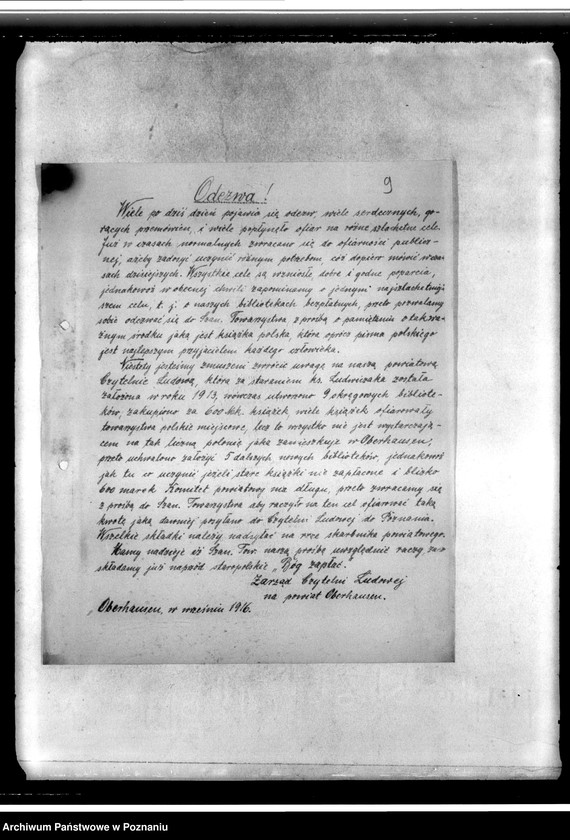 9
Odezwa!
Wiele po dziś dzień pojawia się odezw, wiele serdecznych, go-
rących przemówień, i wiele popłynęło ofiar na różne szlachetne cele.
Już w czasach normalnych zwracano się do ofiarności publicz-
nej, ażeby zadosyć uczynić różnym potrzebom, cóż dopiero mówić w cza-
sach dzisiejszych. Wszystkie cele są wzniosłe dobre i godne poparcia,
jednakowoż w obecnej chwili zapominamy o jednym najszlachetniej-
szem celu, t. j. o naszych bibliotekach bezpłatnych, przeto pozwalamy
sobie odezwać się do Szan. Towarzystwa z prośbą o pamiętaniu o tak wa-
żnym środku jaką jest książka polska, która oprócz pisma polskiego
jest najlepszym przyjacielem każdego człowieka.
Niestety jesteśmy zmuszeni zwrócić uwagę na naszą powiatową
Czytelnię Ludową, która za staraniem ks. Ludwiczaka została
założona w roku 1913, wówczas utworzono 9 okręgowych bibliote-
ków, zakupiono za 600 mk. książek, wiele książek ofiarowały
towarzystwa polskie miejscowe, lecz to wszystko nie jest wystarczają-
cem na tak liczną polonię jaka zamieszkuje w Oberhausen,
przeto uchwalono założyć 5 dalszych nowych biblioteków, jednakowoż
jak tu co uczynić jeżeli stare książki nie zapłacone i blizko
600 marek Komitet powiatowy ma długu, przeto zwracamy się
z prośbą do Szan. Towarzystwa aby raczyło na ten cel ofiarować taką
kwotę jaką dawniej przysłano do Czytelni Ludowej do Poznania.
Wszelkie składki należy nadsyłać na ręce skarbnika powiatowego.
Mamy nadzieję iż Szan. Tow. naszą prośbę uwzględnić raczy, za co
składamy już naprzód staropolskie „Bóg zapłać".
Zarząd Czytelni Ludowej
na powiat Oberhausen.
Oberhausen, w wrześniu 1916.
Archiwum Państwowe w Poznaniu